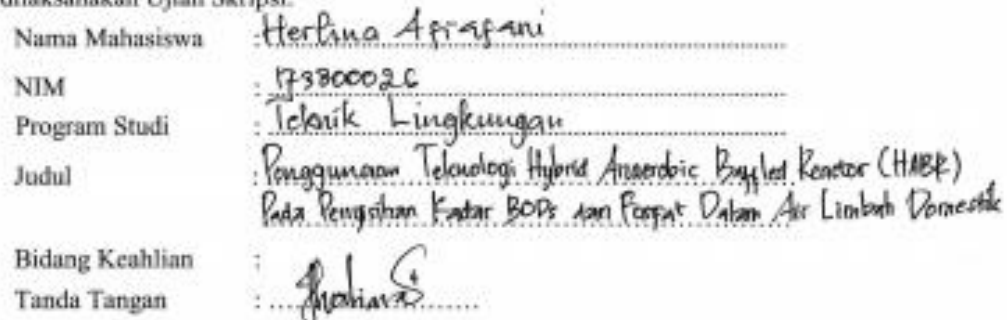 dilaksanakan Ujian Skripsi.
Nama Mahasiswa : Herlina Afrafani
NIM : 173800026
Program Studi : Teknik Lingkungan
Judul : Penggunaan Teknologi Hybrid Anaerobic Baffled Reactor (HABR)
Pada Penyisihan Kadar BOD5 dan Fosfat Dalam Air Limbah Domestik
Bidang Keahlian :
Tanda Tangan :